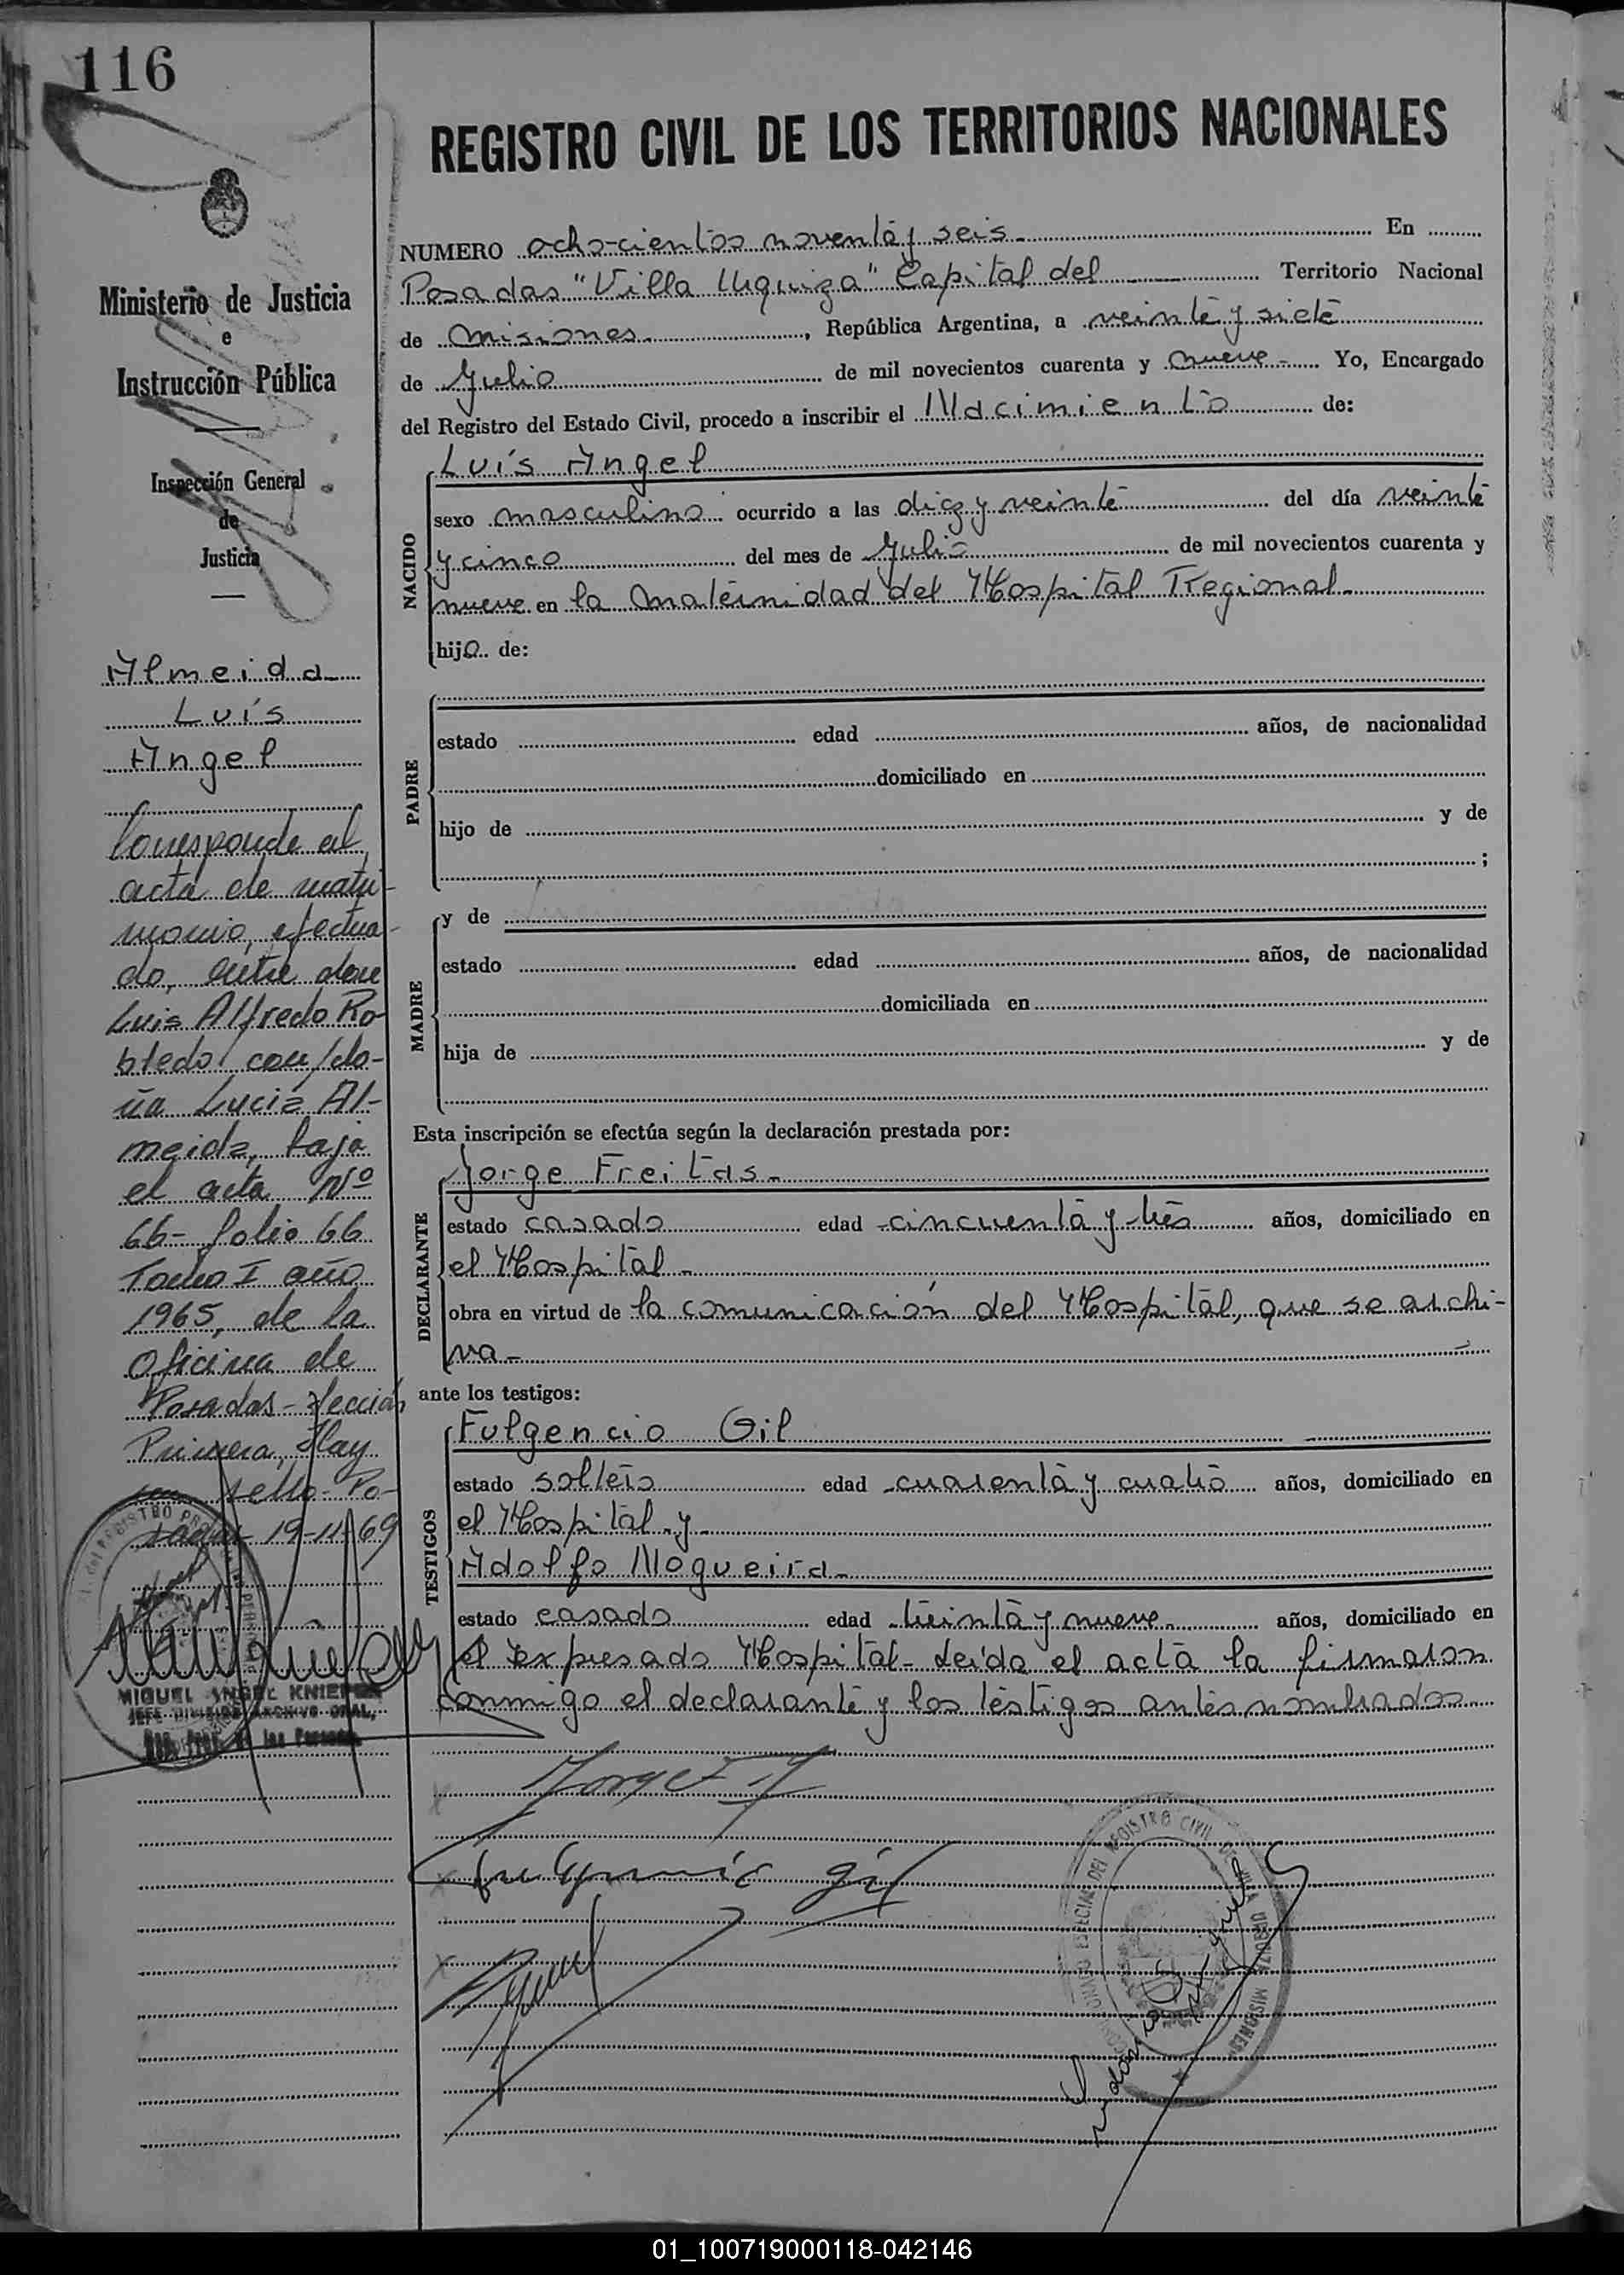 116
REGISTRO CIVIL DE LOS TERRITORIOS NACIONALES
Ministerio de Justicia
e
Instrucción Pública
Inspección General
de
Justicia
Almeida
Luís
Angel
Corresponde al
acta de matri-
monio, efectua-
do, entre don
Luis Alfredo Ro-
bledo con do-
ña Lucia Al-
meida, bajo
el acta Nº
66- folio 66
Tomo I año
1965, de la
Oficina de
Posadas - Sección
Primera, Hay
un sello - Po-
sadas 19-11-69
MIGUEL ANGEL KNIE
JEFE DIVISION ARCHIVO GRAL.
NUMERO ocho-cientos noventa y seis En
Posadas "Villa Urquiza" Capital del Territorio Nacional
de Misiones, República Argentina, a veinte y siete
de Julio de mil novecientos cuarenta y nueve Yo, Encargado
del Registro del Estado Civil, procedo a inscribir el Nacimiento de:
NACIDO
Luís Angel
sexo masculino ocurrido a las diez y veinte del día veinte
y cinco del mes de Julio de mil novecientos cuarenta y
nueve en la Maternidad del Hospital Regional.
hijo de:
PADRE
estado edad años, de nacionalidad
domiciliado en
hijo de y de
;
MADRE
y de
estado edad años, de nacionalidad
domiciliada en
hija de y de
Esta inscripción se efectúa según la declaración prestada por:
DECLARANTE
Jorge Freitas.
estado casado edad cincuenta y tres años, domiciliado en
el Hospital.
obra en virtud de la comunicación del Hospital, que se archi-
va-
ante los testigos:
TESTIGOS
Fulgencio Gil
estado soltero edad cuarenta y cuatro años, domiciliado en
el Hospital y
Adolfo Nogueira-
estado casado edad treinta y nueve años, domiciliado en
el expresado Hospital- Leída el acta la firmaron
conmigo el declarante y los testigos antes nombrados
Jorge F
Fulgencio Gil
REGISTRO CIVIL DE VILLA URQUIZA MISIONES
01_100719000118-042146